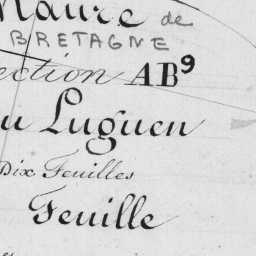 Maure de
BRETAGNE
ection AB9
u Luguen
Dix Feuilles
Feuille